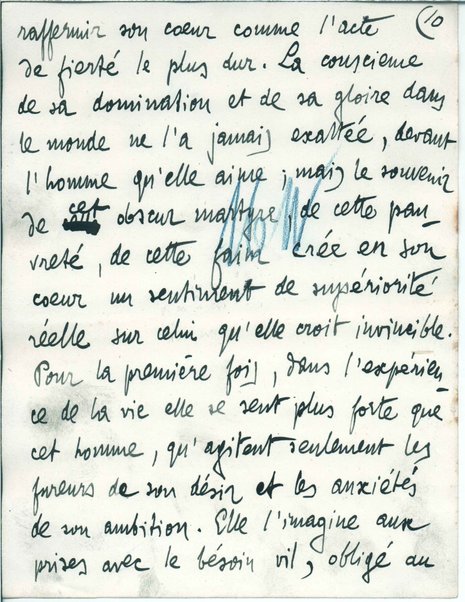 (10
raffermir son cœur comme l'acte
de fierté le plus dur. La conscience
de sa domination et de sa gloire dans
le monde ne l'a jamais exaltée, devant
l'homme qu'elle aime ; mais le souvenir
de cet obscur martyre, de cette pau-
vreté, de cette faim crée en son
coeur un sentiment de supériorité
réelle sur celui qu'elle croit invincible.
Pour la première fois, dans l'expérien-
ce de la vie elle se sent plus forte que
cet homme, qu'agitent seulement les
fureurs de son désir et les anxiétés
de son ambition. Elle l'imagine aux
prises avec le bésoin vil, obligé au